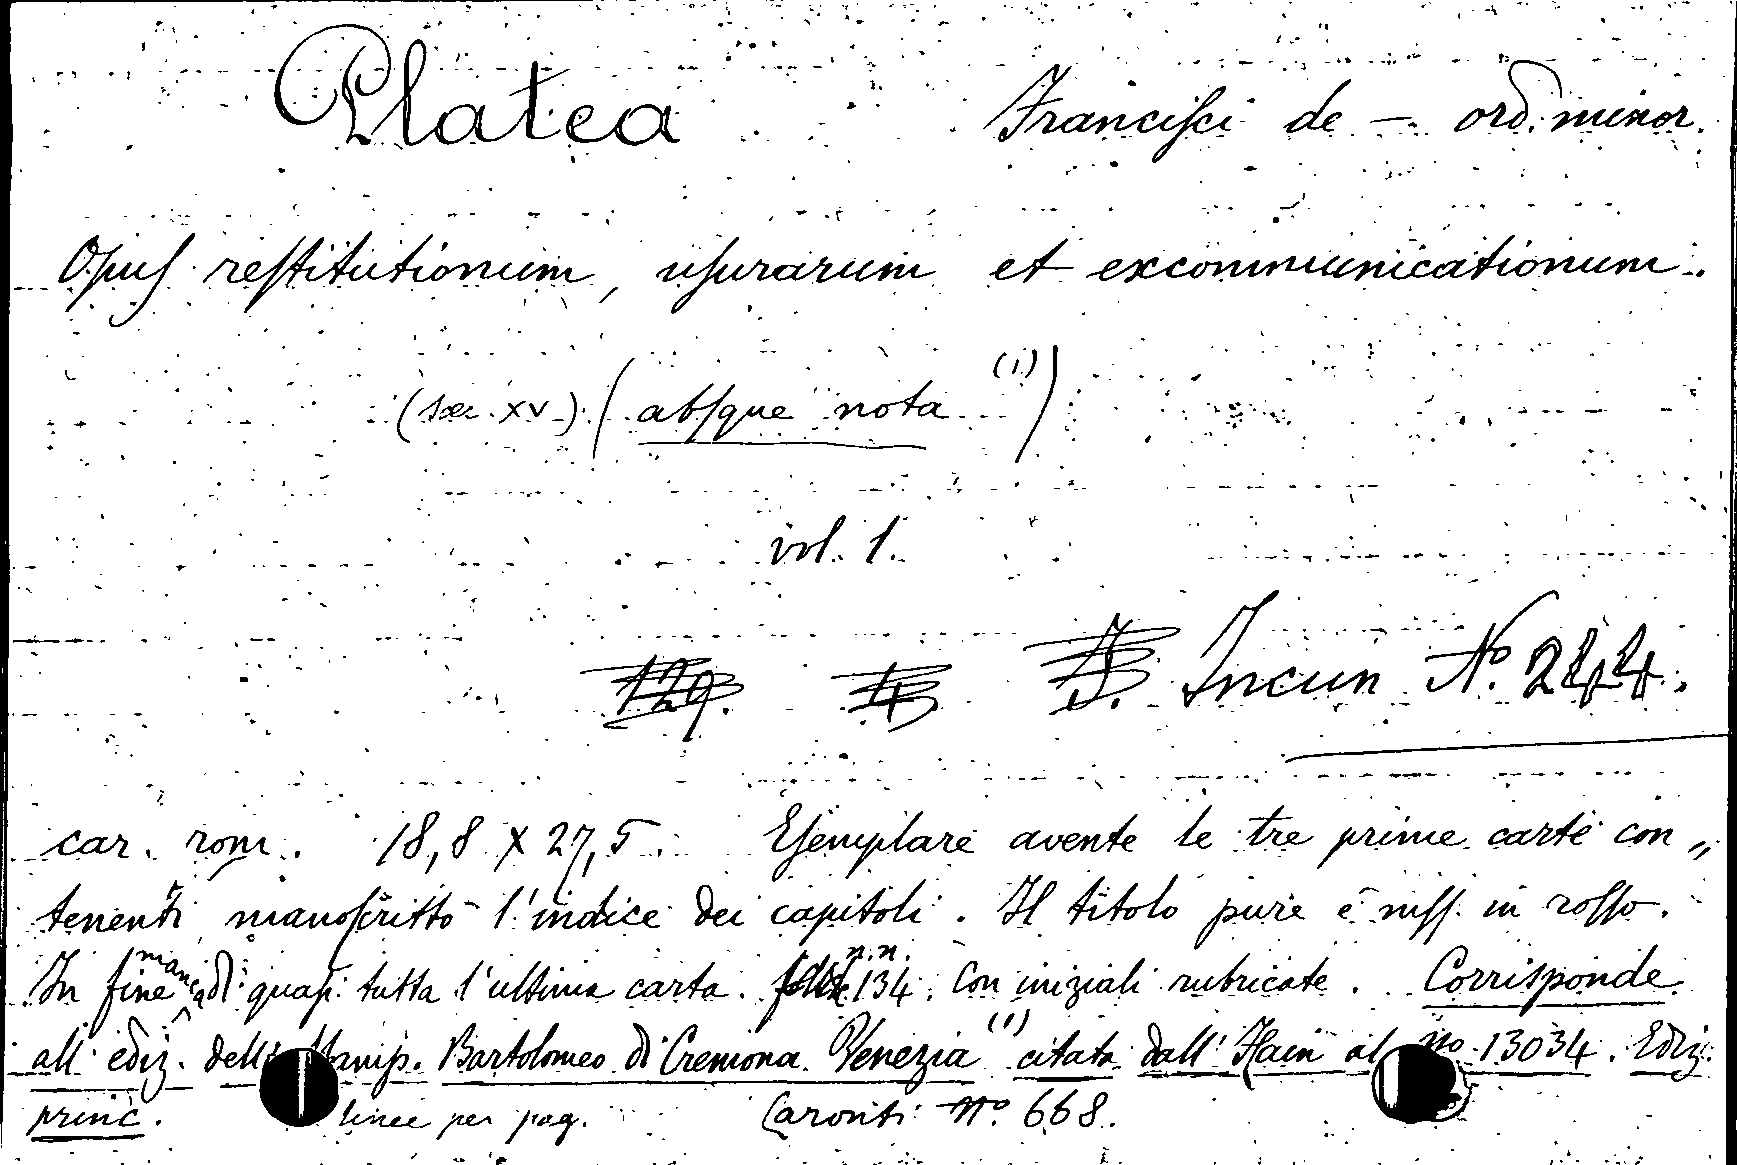 Platea Francisci de — ord. minor.
Opus restitutionum, usurarum et excommunicationum.
(sæc. XV) (absque nota (1))
vol. 1.
129. 4 Incun Nº. 244.
car. rom. 18,8 x 27,5. Esemplare avente le tre prime carte con„
tenenti manoscritto l'indice dei capitoli. Il titolo pure è mss. in rosso.
In fine manca di quasi tutta l'ultima carta. n.n. 134. Con iniziali rubricate. Corrisponde
all' ediz. dello stamp. Bartolomeo di Cremona Venezia (1) citata dall' Hain al no. 13034. Ediz.
princ. linee per pag. Caronti Nº. 668.